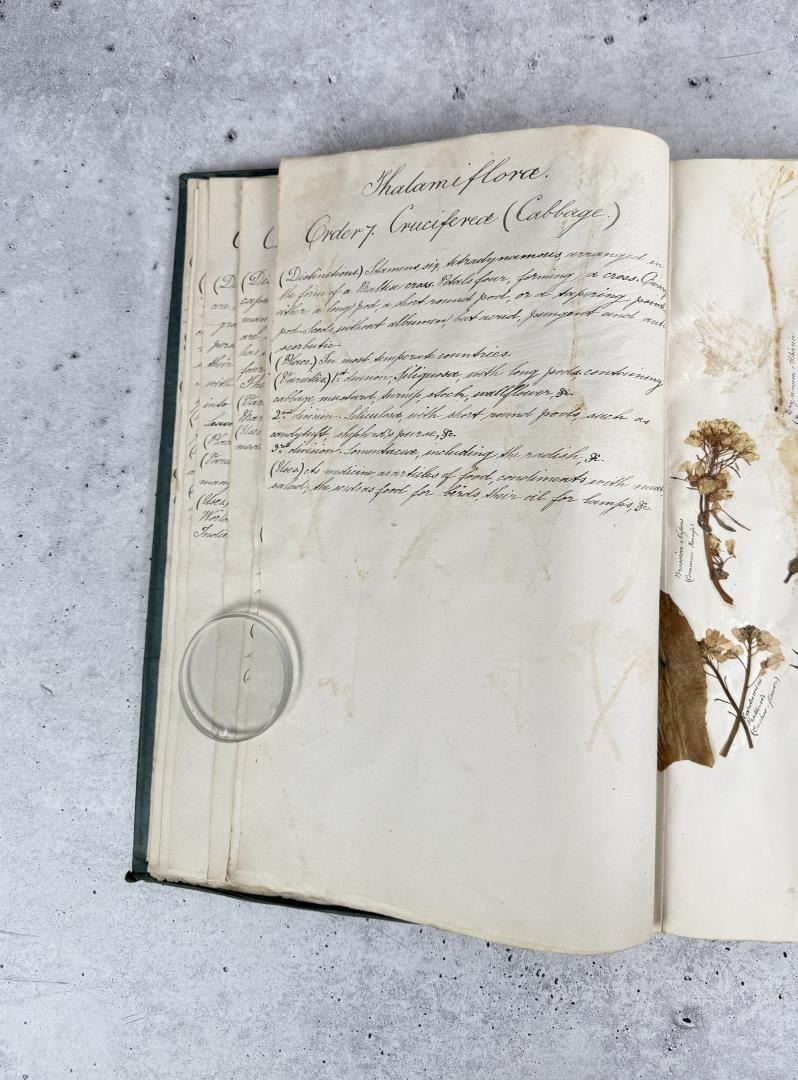 Thalamifloræ.
Order 7. Cruciferæ (Cabbage.)
(Distinctions) Stamens six, tetradynamous arranged in
the form of a Maltese cross. Petals four, forming a cross.
either a long pod, a short round pod, or a tapering
pod. Seeds without albumen, but acrid, pungent and ant
scorbutic.
(Place.) In most temperate countries.
(Varieties) 1st division, Siliquosæ, with long pods containing
cabbage, mustard, turnip, stock, wallflower, &c.
2nd division. Siliculosæ, with short round pods, such as
candytuft, shepherd's purse, &c.
3rd division. Lomentaceæ, including the radish, &c.
(Uses) As medicine, as articles of food, condiments with
salad, the seeds as food for birds, their oil for lamps, &c.
(Di
are
gro
per
their
with
into
Leav
(Place
(Varie
many
(Uses,
World
India
(Dis
caps
man
are
has
four
The
(Var
Mar
(Uses
medi
Brassica Napus
(Common
Cardamine
Pratensis
(Cuckoo-flower)